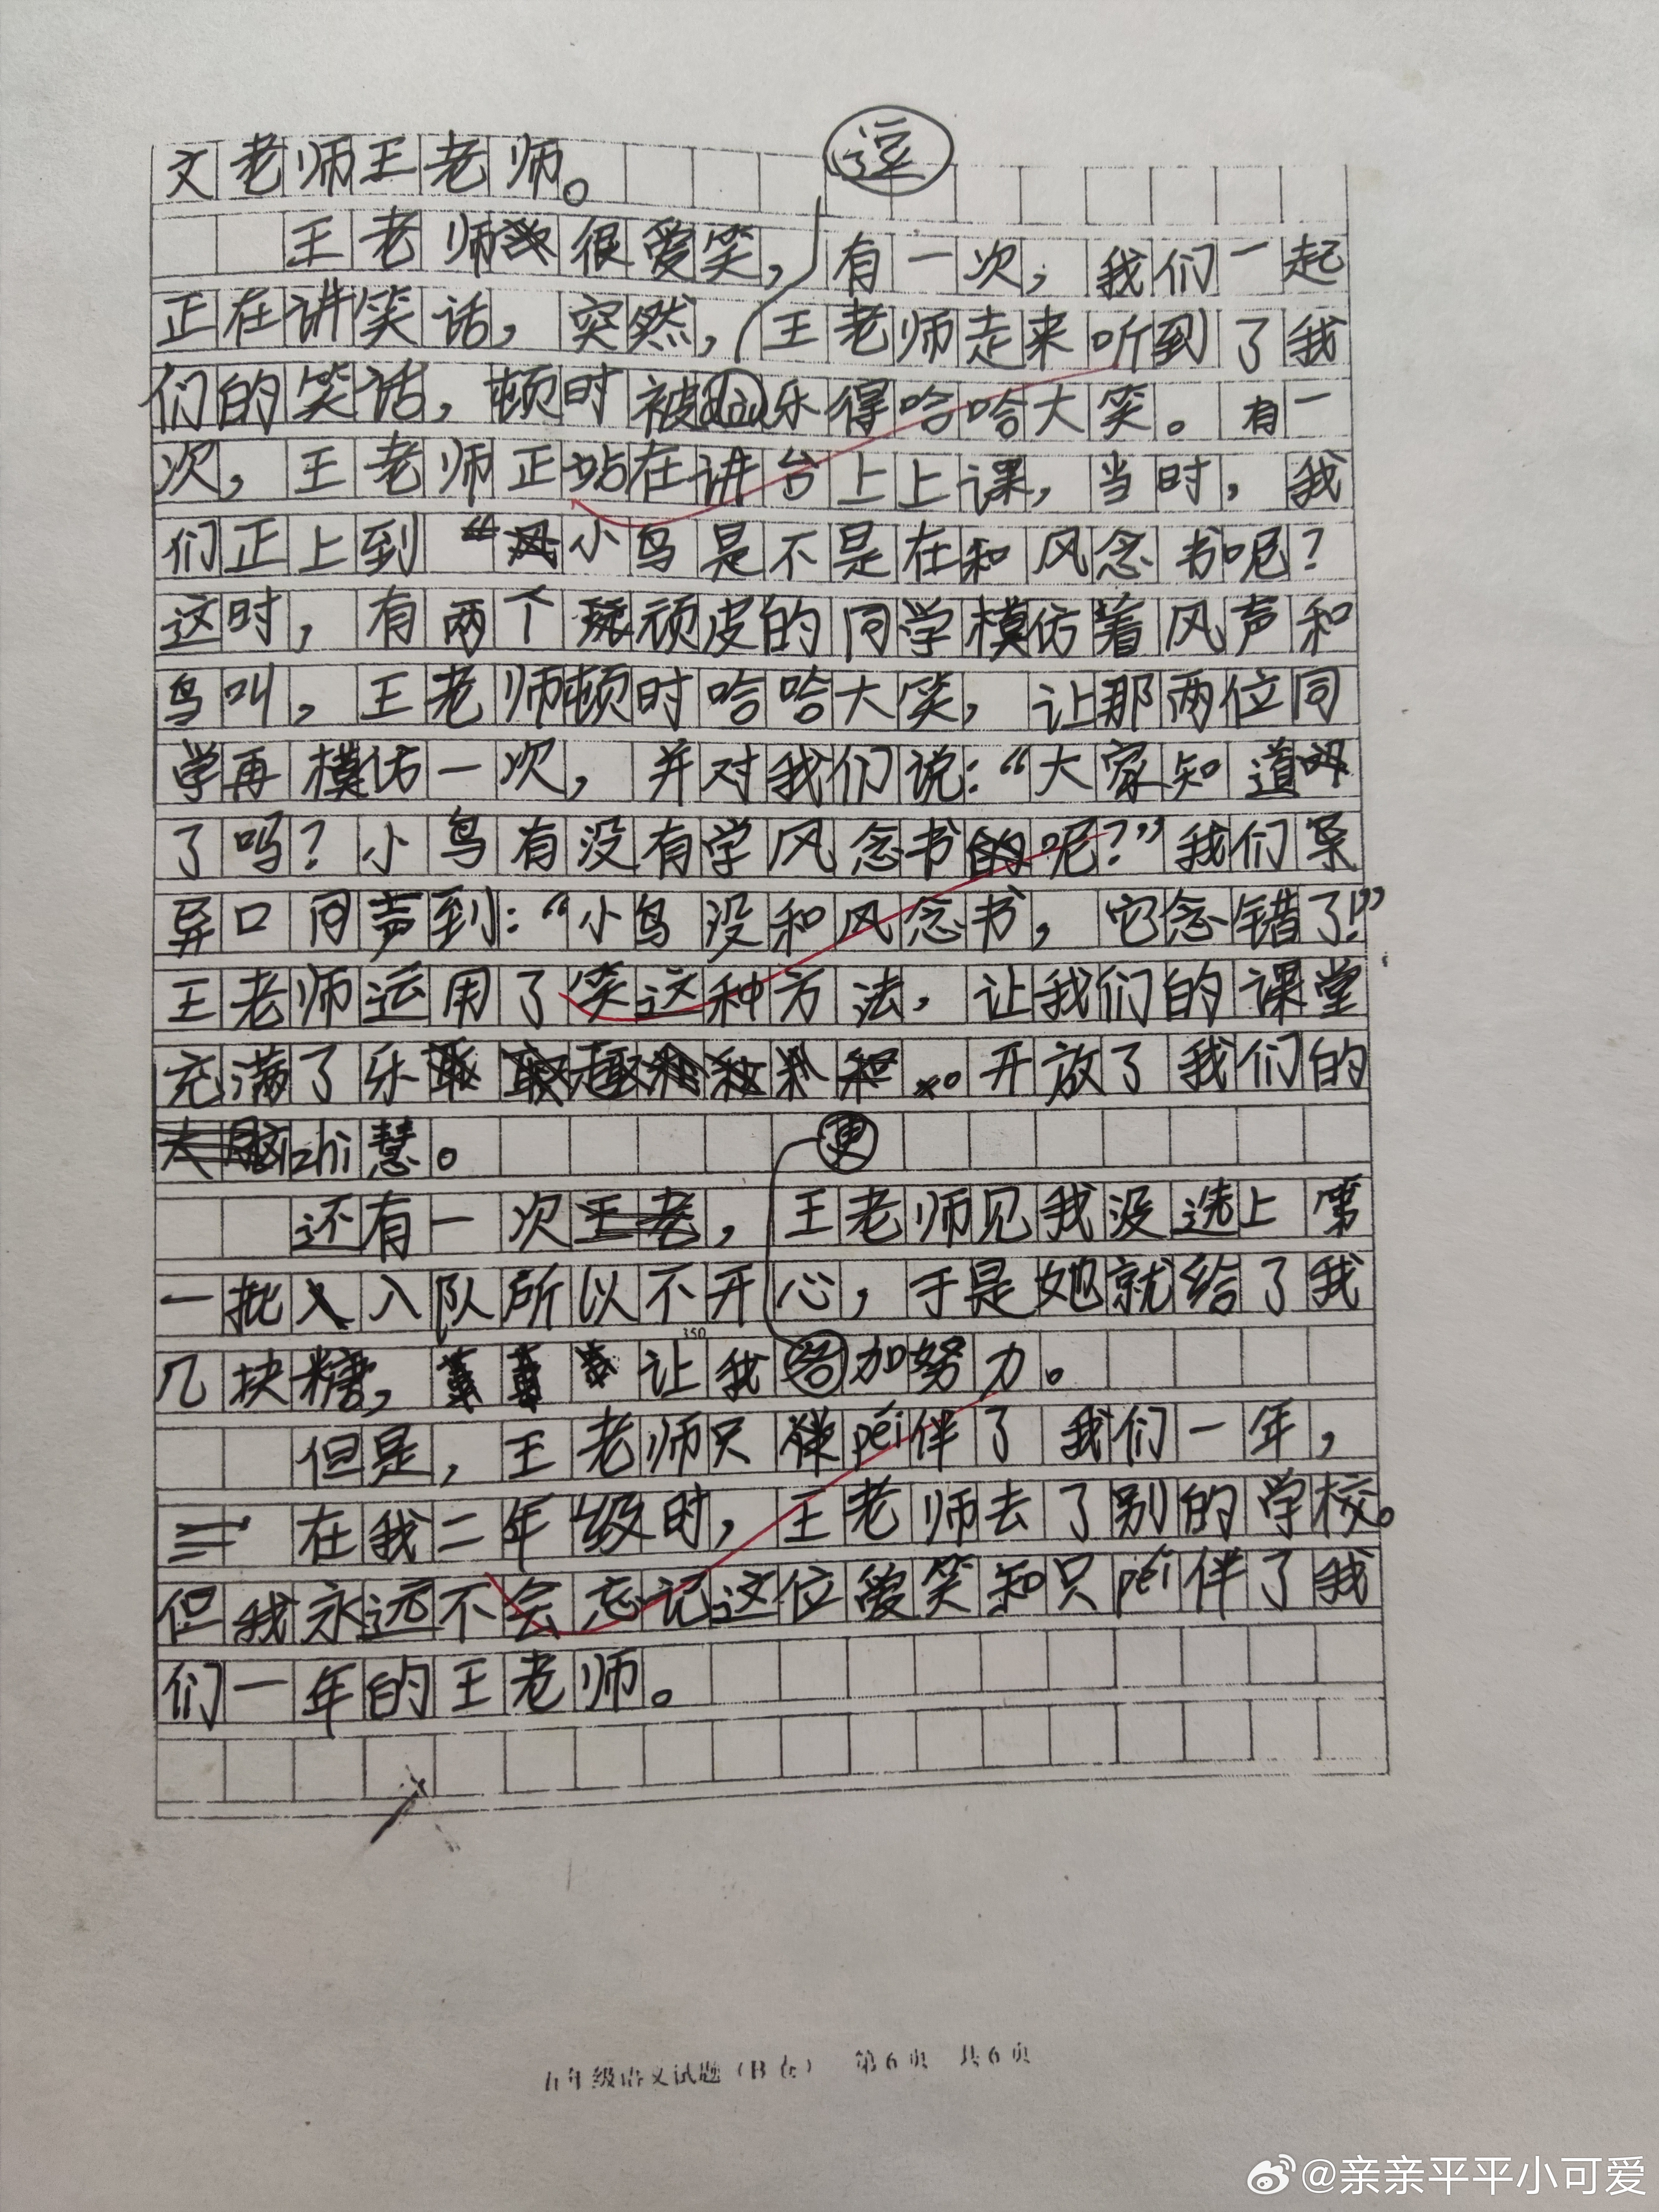 逗
文老师王老师。
王老师很爱笑，有一次，我们一起
正在讲笑话，突然，王老师走来听到了我
们的笑话，顿时被乐得哈哈大笑。有一
次，王老师正站在讲台上上课，当时，我
们正上到“小鸟是不是在和风念书呢？
这时，有两个顽皮的同学模仿着风声和
鸟叫，王老师顿时哈哈大笑，让那两位同
学再模仿一次，并对我们说：“大家知道
了吗？小鸟有没有学风念书呢？”我们
异口同声到：“小鸟没和风念书，它念错了！”
王老师运用了笑这种方法，让我们的课堂
充满了乐开放了我们的
zhi慧。
更
还有一次，王老师见我没选上第
一批入队所以不开心，于是她就给了我
几块糖，让我加努力。
350
但是，王老师只péi伴了我们一年，
在我二年级时，王老师去了别的学校。
但我永远不会忘记这位爱笑和只péi伴了我
们一年的王老师。
五年级语文试题（B卷） 第6页 共6页
@亲亲平平小可爱